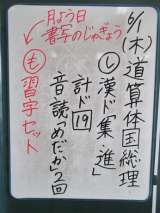 6/1(木)道算体国総理
し漢ド「集、進」
計ド19
音読「めだか」2回
も習字セット
月よう日
書写のじゅぎょう